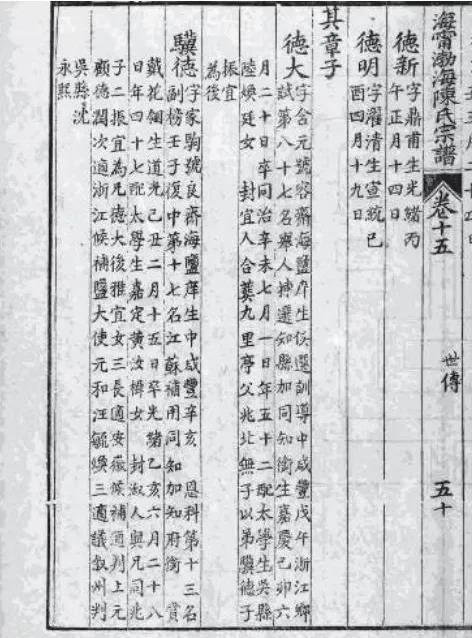 海甯渤海陳氏宗譜
卷十五
世傳
五十
德新
字鼎甫生光緒丙
午正月十四日
德明
字濯清生宣統己
酉四月十九日
其章子
德大
字含元號容齋海鹽庠生候選訓導中咸豐戊午浙江鄉
試第八十七名舉人揀選知縣加同知銜生嘉慶己卯六
月二十日卒同治辛未七月一日年五十二配太學生吳縣
陸煥廷女 封宜人合葬九里亭父兆北無子以弟驥德子
振宜
為後
驥德
字家駒號良齋海鹽庠生中咸豐辛亥 恩科第十三名
副榜壬子復中第十七名江蘇補用同知加知府銜 賞
戴花翎生道光己丑二月十五日卒光緒乙亥六月二十八
日年四十七配太學生嘉定黃汝樟女 封淑人與兄同兆
子二振宜為兄德大後雅宜女三長適安徽候補通判上元
顧德潤次適浙江候補鹽大使元和汪毓煐三適議敘州判
吳縣沈
永熙